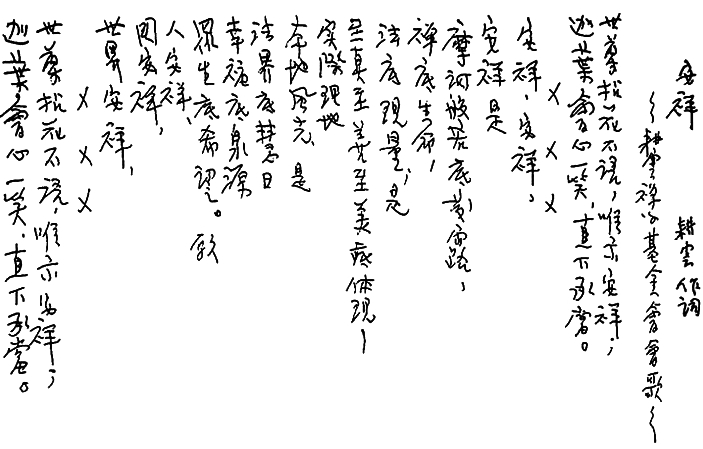 安祥 耕雲作詞
～耕雲禪學基金會會歌～
世尊拈花不語，唯示安祥；
迦葉會心一笑，直下承當。
× × ×
安祥，安祥，
安祥是
摩訶般若底黃金路，
禪底生命，
法底現量，是
至真至善至美底体現—
实際理地
本地風光，是
法界底慧日
幸福底泉源
羣生底希望。願
人安祥、
國安祥，
世界安祥，
× × ×
世尊拈花不語，唯示安祥；
迦葉會心一笑，直下承當。